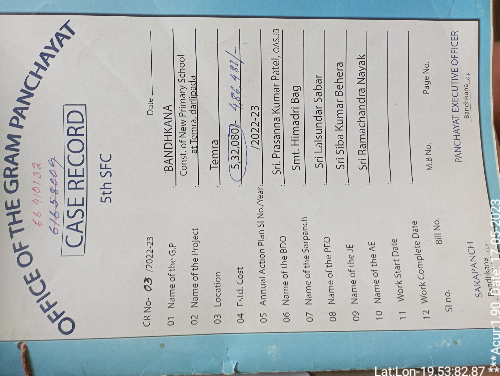 OFFICE OF THE GRAM PANCHAYAT
66410132
61658009
CASE RECORD
5th SFC
CR No- 03 /2022-23 Date
01 Name of the G.P BANDHKANA
02 Name of the Project Const. of New Primary School
at Temra, danipada
03 Location Temra
04 Estd. Cost 5,32,080/- 4,86,482/-
05 Annual Action Plan Sl No/Year /2022-23
06 Name of the BDO Sri. Prasanna Kumar Patel, OAS
07 Name of the Sarpanch Smt. Himadri Bag
08 Name of the PEO Sri Lalsundar Sabar
09 Name of the JE Sri Siba Kumar Behera
10 Name of the AE Sri Ramachandra Nayak
11 Work Start Date
12 Work Complete Date
Sl no. Bill No. M.B No. Page No.
SARAPANCH PANCHAYAT EXECUTIVE OFFICER
Bandhkana Bandhkana
Lat:Lon-19.53:82.87